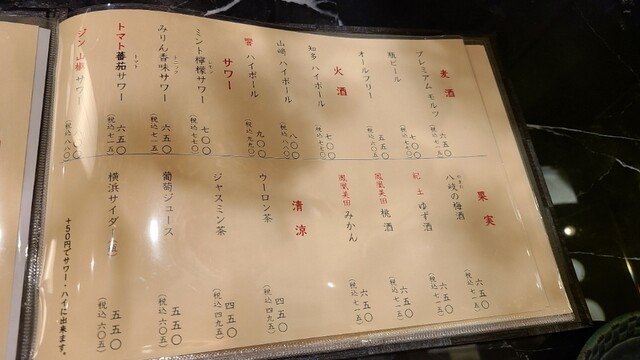 麦酒
プレミアムモルツ 六五〇
(税込 七一五)
瓶ビール 七〇〇
(税込 七七〇)
オールフリー 五五〇
(税込 六〇五)
火酒
知多ハイボール 七〇〇
(税込 七七〇)
山崎ハイボール 八〇〇
(税込 八八〇)
響ハイボール 九〇〇
(税込 九九〇)
サワー
ミント檸檬サワー 七〇〇
(税込 七七〇)
みりん香味サワー 六五〇
(税込 七一五)
トマト蕃茄サワー 六五〇
(税込 七一五)
ジン山椒サワー
(税込 八八〇)
果実
八岐の梅酒 六五〇
(税込 七一五)
紀土 ゆず酒 六五〇
(税込 七一五)
鳳凰美田 桃酒 六五〇
(税込 七一五)
鳳凰美田 みかん 六五〇
(税込 七一五)
清涼
ウーロン茶 四五〇
(税込 四九五)
ジャスミン茶 四五〇
(税込 四九五)
葡萄ジュース 五五〇
(税込 六〇五)
横浜サイダー 五五〇
(税込 六〇五)
+50円でサワー・ハイに出来ます。